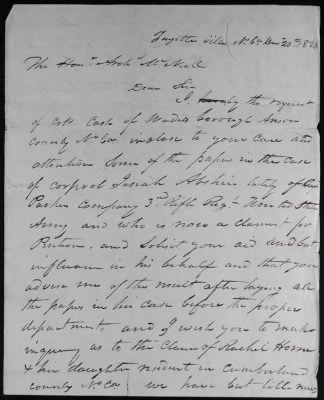 Fayette ville N. Ca Decr 20th 182
The Honl. Archd. McNeill
Dear Sir
I by the request
of Colo. Cash of Wadesborough Anson
county No Ca inclose to your Care and
attention Some of the papers in the case
of corporal Josiah lately of
Parkes Company 3rd Rifle Regt. United States
Army and who is now a claimant for
Pention. and Solisit your aid and
influence in his behalf and that you
advise me of the result after laying all
the papers in his case before the proper
department and I wish you to make
inquery as to the Claim of Rachel Horne
& her daughter resident in Cumberland
county No Ca. we have but little news